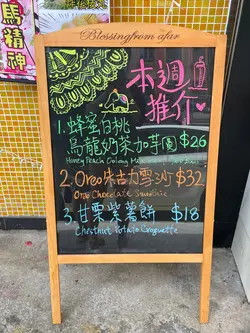 馬精神
Blessing from afar
本週
推介
1. 蜂蜜白桃
烏龍奶茶加芋圓 $26
Honey Peach Oolong
2. Oreo朱古力雪沙 $32
Oreo Chocolate Smoothie
3. 甘栗紫薯餅 $18
Chestnut Potato Croquette